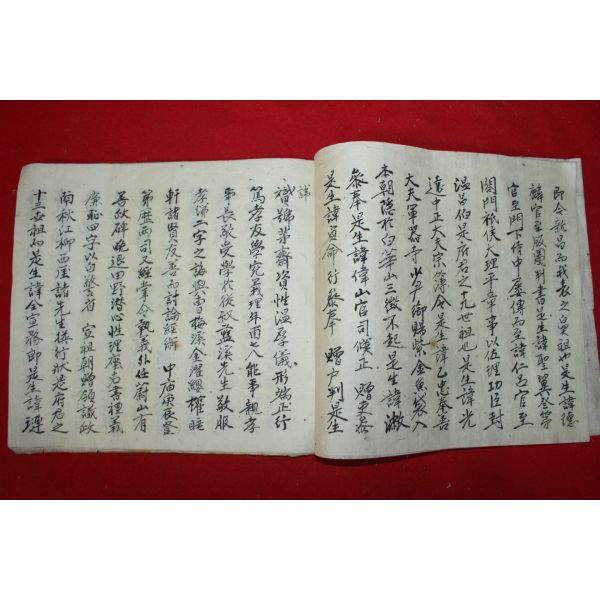 即今新昌而我表之白男祖也是生諱德
諱官至版圖判書是生諱聖翼登第
官至門下侍中屢傳而至諱仁官至
閤門祗侯大理平章事以佐理功臣封
温昌伯是府君之十九世祖也是生諱光
遠中正大夫宗簿令是生諱乙忠奉善
大夫軍器寺少尹御賜紫金魚袋入
本朝隐於白華山三徵不起是生諱澉
叅奉是生諱偉山官司候正 贈
是生諱貞命行叅奉 贈户判是生
諱
號茅齋資性温厚儀形端正行
篤孝友學究義理年甫八能事親孝
事長敬受學於從叔藍溪先生敬服
孝悌二字之誨與曺梅溪金濯纓權睡
軒諸賢友善而討論經術 中庙庚辰登
第歷兩司又經掌令執義外任蔚山有
善政碑晚退田野潜心性理座右書禮義
廉恥四字以自警省 宣祖朝贈領議政
南秋江柳西厓諸先生撰行狀是府君之
十三世祖而是生諱 全 即是生諱 理